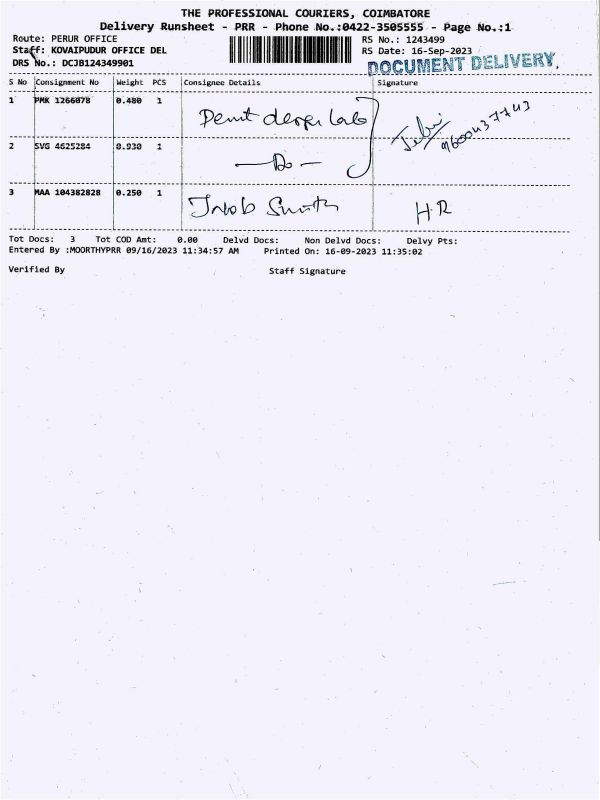 THE PROFESSIONAL COURIERS, COIMBATORE
Delivery Runsheet - PRR - Phone No.:0422-3505555 - Page No.:1
Route: PERUR OFFICE RS No.: 1243499
Staff: KOVAIPUDUR OFFICE DEL RS Date: 16-Sep-2023
DRS No.: DCJB124349901 DOCUMENT DELIVERY.
S No Consignment No Weight PCS Consignee Details Signature
1 PMK 1266078 0.480 1
9600437743
2 SVG 4625284 0.930 1 —Do—
3 MAA 104382828 0.250 1 Smith H.R
Tot Docs: 3 Tot COD Amt: 0.00 Delvd Docs: Non Delvd Docs: Delvy Pts:
Entered By :MOORTHYPRR 09/16/2023 11:34:57 AM Printed On: 16-09-2023 11:35:02
Verified By Staff Signature